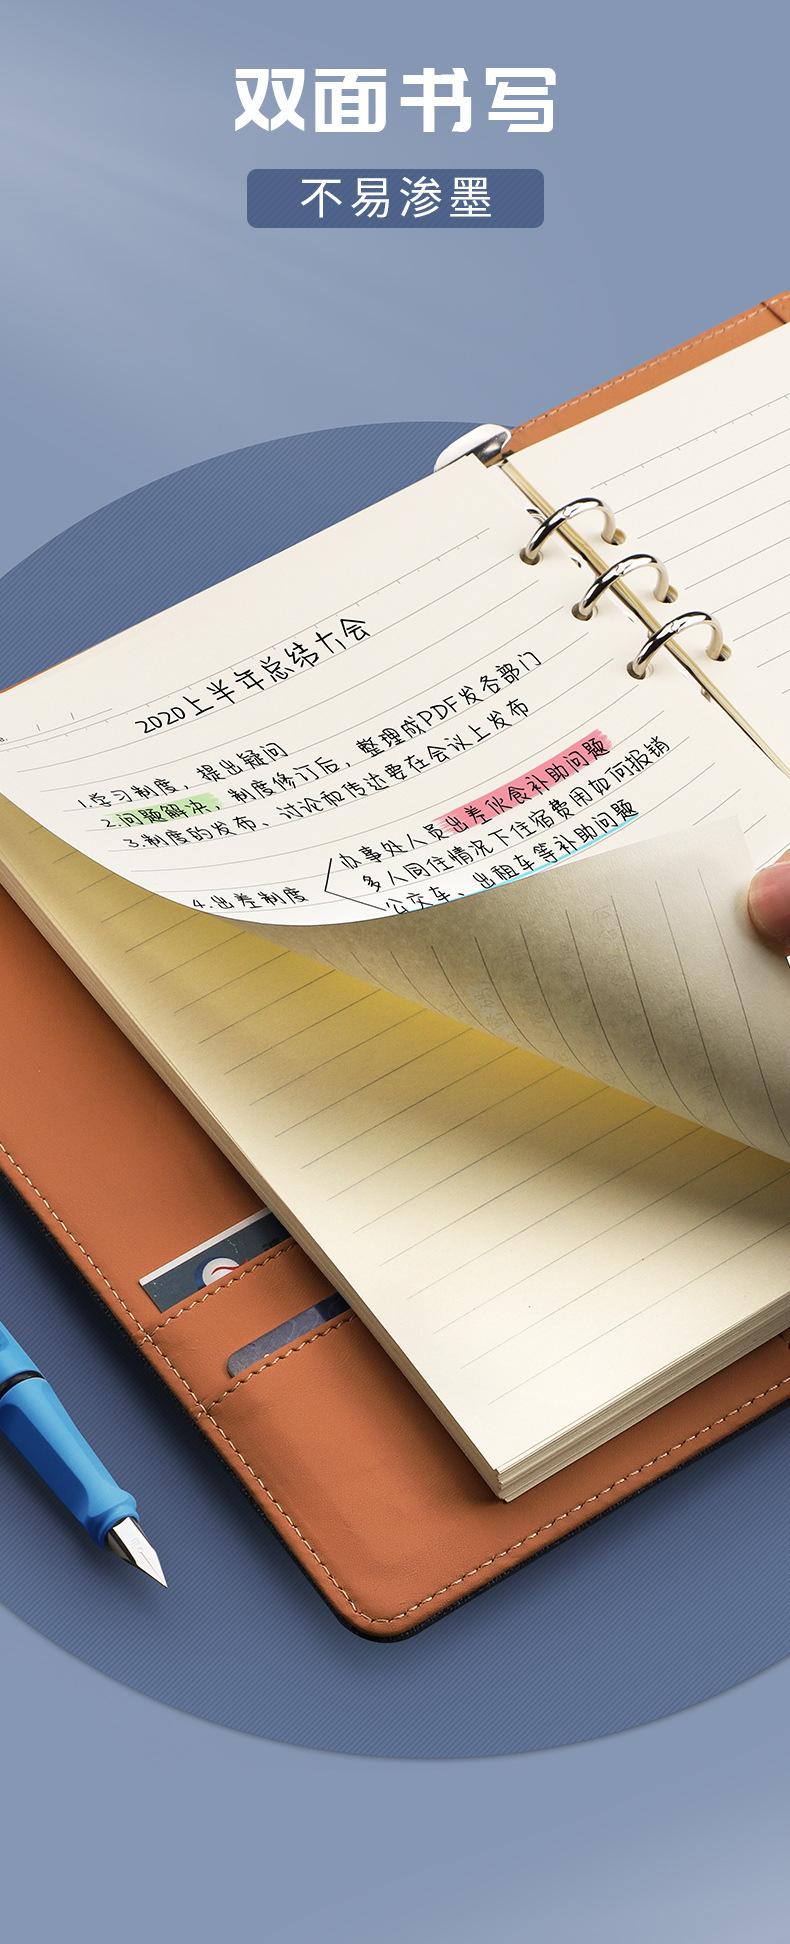 双面书写
不易渗墨
2020上半年总结大会
1.学习制度，提出疑问
2.问题解决，制度修订后，整理成PDF发各部门
3.制度的发布、讨论和传达要在会议上发布
4.出差制度
办事处人员出差伙食补助问题
多人同住情况下住宿费用如何报销
公交车、出租车等补助问题